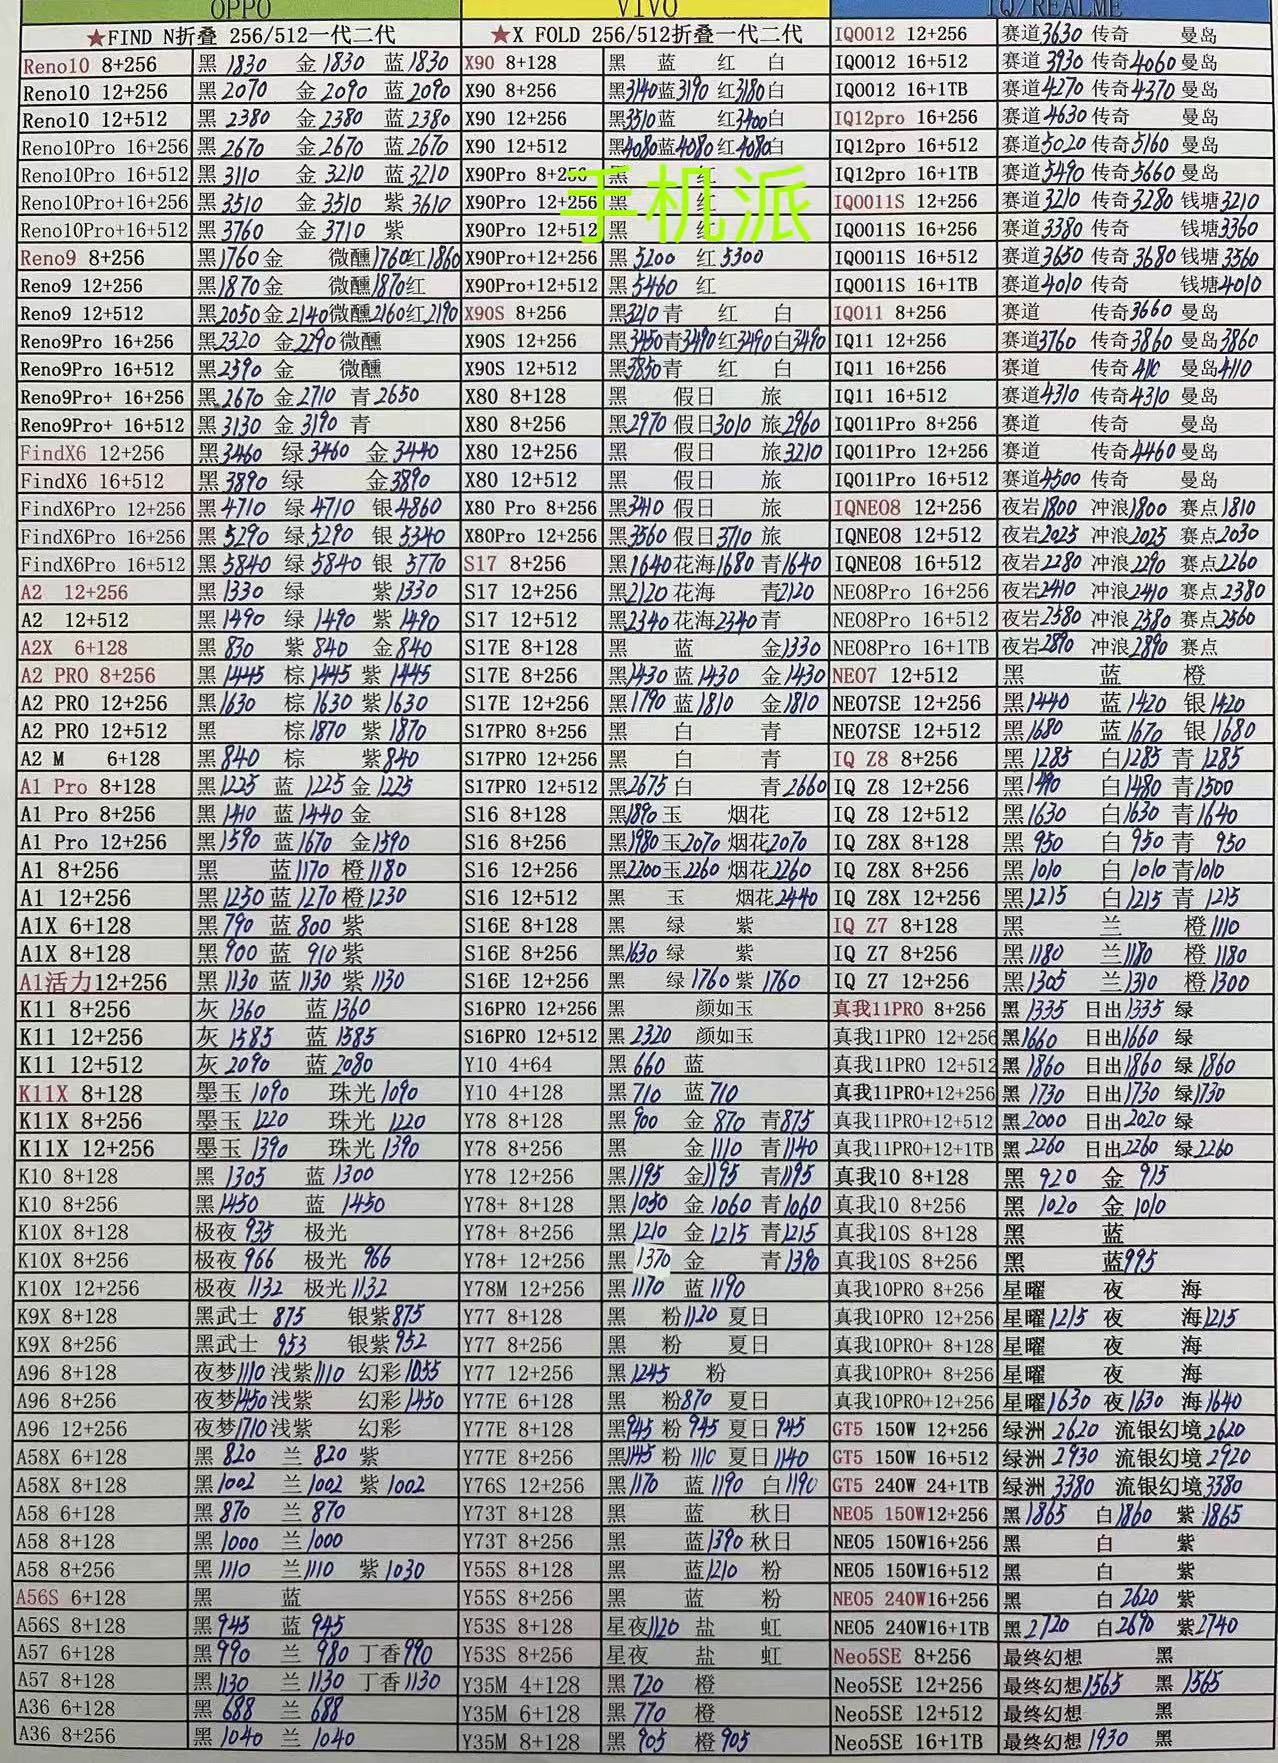 OPPO VIVO IQ/REALME
★FIND N折叠 256/512一代二代 ★X FOLD 256/512折叠一代二代 IQ0012 12+256 赛道3630 传奇 曼岛
Reno10 8+256 黑 1830 金 1830 蓝 1830 X90 8+128 黑 蓝 红 白 IQ0012 16+512 赛道3930 传奇4060 曼岛
Reno10 12+256 黑 2070 金 2090 蓝 2090 X90 8+256 黑3140 蓝3190 红3180 白 IQ0012 16+1TB 赛道4270 传奇4370 曼岛
Reno10 12+512 黑 2380 金 2380 蓝 2380 X90 12+256 黑3510 蓝 红3400 白 IQ12pro 16+256 赛道4630 传奇 曼岛
Reno10Pro 16+256 黑 2670 金 2670 蓝 2670 X90 12+512 黑4080 蓝4080 红4080 白 IQ12pro 16+512 赛道5020 传奇5160 曼岛
Reno10Pro 16+512 黑 3110 金 3210 蓝 3210 X90Pro 8+256 黑 红 IQ12pro 16+1TB 赛道5490 传奇5660 曼岛
手机派
Reno10Pro+16+256 黑 3510 金 3510 紫 3610 X90Pro 12+256 黑 红 IQ0011S 12+256 赛道3210 传奇3280 钱塘3210
Reno10Pro+16+512 黑 3760 金 3710 紫 X90Pro 12+512 黑 红 IQ0011S 16+256 赛道3380 传奇 钱塘3360
Reno9 8+256 黑1760 金 微醺1760 红1860 X90Pro+12+256 黑 5200 红 5300 IQ0011S 16+512 赛道3650 传奇3680 钱塘3560
Reno9 12+256 黑1870 金 微醺1870 红 X90Pro+12+512 黑 5460 红 IQ0011S 16+1TB 赛道4010 传奇 钱塘4010
Reno9 12+512 黑2050 金2140 微醺2160 红2190 X90S 8+256 黑3210 青 红 白 IQ011 8+256 赛道 传奇3660 曼岛
Reno9Pro 16+256 黑2320 金2290 微醺 X90S 12+256 黑3450 青3490 红3490 白3490 IQ11 12+256 赛道3760 传奇3860 曼岛3860
Reno9Pro 16+512 黑2590 金 微醺 X90S 12+512 黑3850 青 红 白 IQ11 16+256 赛道 传奇 曼岛4110
Reno9Pro+ 16+256 黑2670 金2710 青 2650 X80 8+128 黑 假日 旅 IQ11 16+512 赛道4310 传奇4310 曼岛
Reno9Pro+ 16+512 黑3130 金 3190 青 X80 8+256 黑2970 假日3010 旅2960 IQ011Pro 8+256 赛道 传奇 曼岛
FindX6 12+256 黑3460 绿 3460 金 3440 X80 12+256 黑 假日 旅3210 IQ011Pro 12+256 赛道 传奇4460 曼岛
FindX6 16+512 黑3890 绿 金3890 X80 12+512 黑 假日 旅 IQ011Pro 16+512 赛道4500 传奇 曼岛
FindX6Pro 12+256 黑4710 绿 4710 银4860 X80 Pro 8+256 黑3410 假日 旅 IQNEO8 12+256 夜岩1800 冲浪1800 赛点1810
FindX6Pro 16+256 黑5290 绿5290 银 5340 X80Pro 12+256 黑3560 假日3710 旅 IQNEO8 12+512 夜岩2025 冲浪2025 赛点2030
FindX6Pro 16+512 黑5840 绿 5840 银 5770 S17 8+256 黑1640 花海1680 青1640 IQNEO8 16+512 夜岩2280 冲浪2290 赛点2260
A2 12+256 黑1330 绿 紫1330 S17 12+256 黑2120 花海 青2120 NEO8Pro 16+256 夜岩2410 冲浪2410 赛点2380
A2 12+512 黑 1490 绿 1490 紫 1490 S17 12+512 黑2340 花海2340 青 NEO8Pro 16+512 夜岩2580 冲浪2580 赛点2560
A2X 6+128 黑 830 紫 840 金840 S17E 8+128 黑 蓝 金1330 NEO8Pro 16+1TB 夜岩2890 冲浪2890 赛点
A2 PRO 8+256 黑1445 棕 1445 紫 1445 S17E 8+256 黑1430 蓝1430 金1430 NEO7 12+512 黑 蓝 橙
A2 PRO 12+256 黑1630 棕 1630 紫1630 S17E 12+256 黑1790 蓝1810 金1810 NEO7SE 12+256 黑1440 蓝1420 银1420
A2 PRO 12+512 黑 棕1870 紫1870 S17PRO 8+256 黑 白 青 NEO7SE 12+512 黑1680 蓝1670 银1680
A2 M 6+128 黑840 棕 紫840 S17PRO 12+256 黑 白 青 IQ Z8 8+256 黑 1285 白1285 青 1285
A1 Pro 8+128 黑1225 蓝 1225 金1225 S17PRO 12+512 黑2675 白 青2660 IQ Z8 12+256 黑1490 白1480 青1500
A1 Pro 8+256 黑1410 蓝1440 金 S16 8+128 黑1890 玉 烟花 IQ Z8 12+512 黑1630 白1630 青1640
A1 Pro 12+256 黑1590 蓝1670 金1590 S16 8+256 黑1980 玉2070 烟花2070 IQ Z8X 8+128 黑 950 白 950 青 950
A1 8+256 黑 蓝1170 橙1180 S16 12+256 黑2200 玉2260 烟花2260 IQ Z8X 8+256 黑1010 白1010 青1010
A1 12+256 黑1250 蓝1270 橙1230 S16 12+512 黑 玉 烟花2440 IQ Z8X 12+256 黑1215 白1215 青 1215
A1X 6+128 黑790 蓝800 紫 S16E 8+128 黑 绿 紫 IQ Z7 8+128 黑 兰 橙1110
A1X 8+128 黑900 蓝 910 紫 S16E 8+256 黑1630 绿 紫 IQ Z7 8+256 黑1180 兰1180 橙 1180
A1活力12+256 黑1130 蓝1130 紫1130 S16E 12+256 黑 绿1760 紫1760 IQ Z7 12+256 黑1305 兰1310 橙1300
K11 8+256 灰 1360 蓝1360 S16PRO 12+256 黑 颜如玉 真我11PRO 8+256 黑 1335 日出1335 绿
K11 12+256 灰 1585 蓝1585 S16PRO 12+512 黑 2320 颜如玉 真我11PRO 12+256 黑1660 日出1660 绿
K11 12+512 灰 2090 蓝2080 Y10 4+64 黑 660 蓝 真我11PRO 12+512 黑1860 日出1860 绿1860
K11X 8+128 墨玉 1090 珠光1090 Y10 4+128 黑710 蓝710 真我11PRO+12+256 黑 1730 日出1730 绿1730
K11X 8+256 墨玉 1220 珠光1220 Y78 8+128 黑900 金 870 青875 真我11PRO+12+512 黑2000 日出2020 绿
K11X 12+256 墨玉 1390 珠光1390 Y78 8+256 黑 金1110 青1140 真我11PRO+12+1TB 黑 2260 日出2260 绿2260
K10 8+128 黑 1305 蓝 1300 Y78 12+256 黑1195 金1195 青1195 真我10 8+128 黑 920 金 915
K10 8+256 黑1450 蓝 1450 Y78+ 8+128 黑1050 金1060 青1060 真我10 8+256 黑 1020 金 1010
K10X 8+128 极夜 935 极光 Y78+ 8+256 黑 1210 金 1215 青1215 真我10S 8+128 黑 蓝
K10X 8+256 极夜 966 极光 966 Y78+ 12+256 黑 1370 金 青1390 真我10S 8+256 黑 蓝995
K10X 12+256 极夜 1132 极光1132 Y78M 12+256 黑1170 蓝1190 真我10PRO 8+256 星曜 夜 海
K9X 8+128 黑武士 875 银紫875 Y77 8+128 黑 粉1120 夏日 真我10PRO 12+256 星曜1215 夜 海1215
K9X 8+256 黑武士 953 银紫952 Y77 8+256 黑 粉 夏日 真我10PRO+ 8+128 星曜 夜 海
A96 8+128 夜梦1110 浅紫1110 幻彩1055 Y77 12+256 黑1245 粉 真我10PRO+ 8+256 星曜 夜 海
A96 8+256 夜梦1450 浅紫 幻彩1450 Y77E 6+128 黑 粉870 夏日 真我10PRO+12+256 星曜1630 夜1630 海1640
A96 12+256 夜梦1710 浅紫 幻彩 Y77E 8+128 黑945 粉 945 夏日945 GT5 150W 12+256 绿洲 2620 流银幻境2620
A58X 6+128 黑 820 兰 820 紫 Y77E 8+256 黑1145 粉 1110 夏日1140 GT5 150W 16+512 绿洲 2930 流银幻境2920
A58X 8+128 黑1002 兰1002 紫1002 Y76S 12+256 黑1170 蓝 1190 白1190 GT5 240W 24+1TB 绿洲 3380 流银幻境3380
A58 6+128 黑 870 兰 870 Y73T 8+128 黑 蓝 秋日 NEO5 150W12+256 黑1865 白1860 紫1865
A58 8+128 黑1000 兰1000 Y73T 8+256 黑 蓝1390 秋日 NEO5 150W16+256 黑 白 紫
A58 8+256 黑1110 兰1110 紫 1030 Y55S 8+128 黑 蓝1210 粉 NEO5 150W16+512 黑 白 紫
A56S 6+128 黑 蓝 Y55S 8+256 黑 蓝 粉 NEO5 240W16+256 黑 白 2620 紫
A56S 8+128 黑945 蓝 945 Y53S 8+128 星夜1120 盐 虹 NEO5 240W16+1TB 黑2720 白2690 紫2740
A57 6+128 黑990 兰 980 丁香990 Y53S 8+256 星夜 盐 虹 Neo5SE 8+256 最终幻想 黑
A57 8+128 黑1130 兰 1130 丁香1130 Y35M 4+128 黑720 橙 Neo5SE 12+256 最终幻想1565 黑 1565
A36 6+128 黑 688 兰 688 Y35M 6+128 黑770 橙 Neo5SE 12+512 最终幻想 黑
A36 8+256 黑1040 兰 1040 Y35M 8+128 黑 905 橙 905 Neo5SE 16+1TB 最终幻想1930 黑